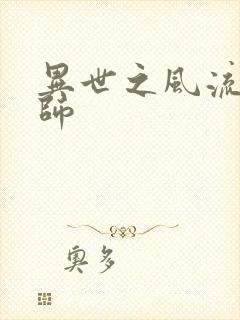 異世之風流
師
奧多